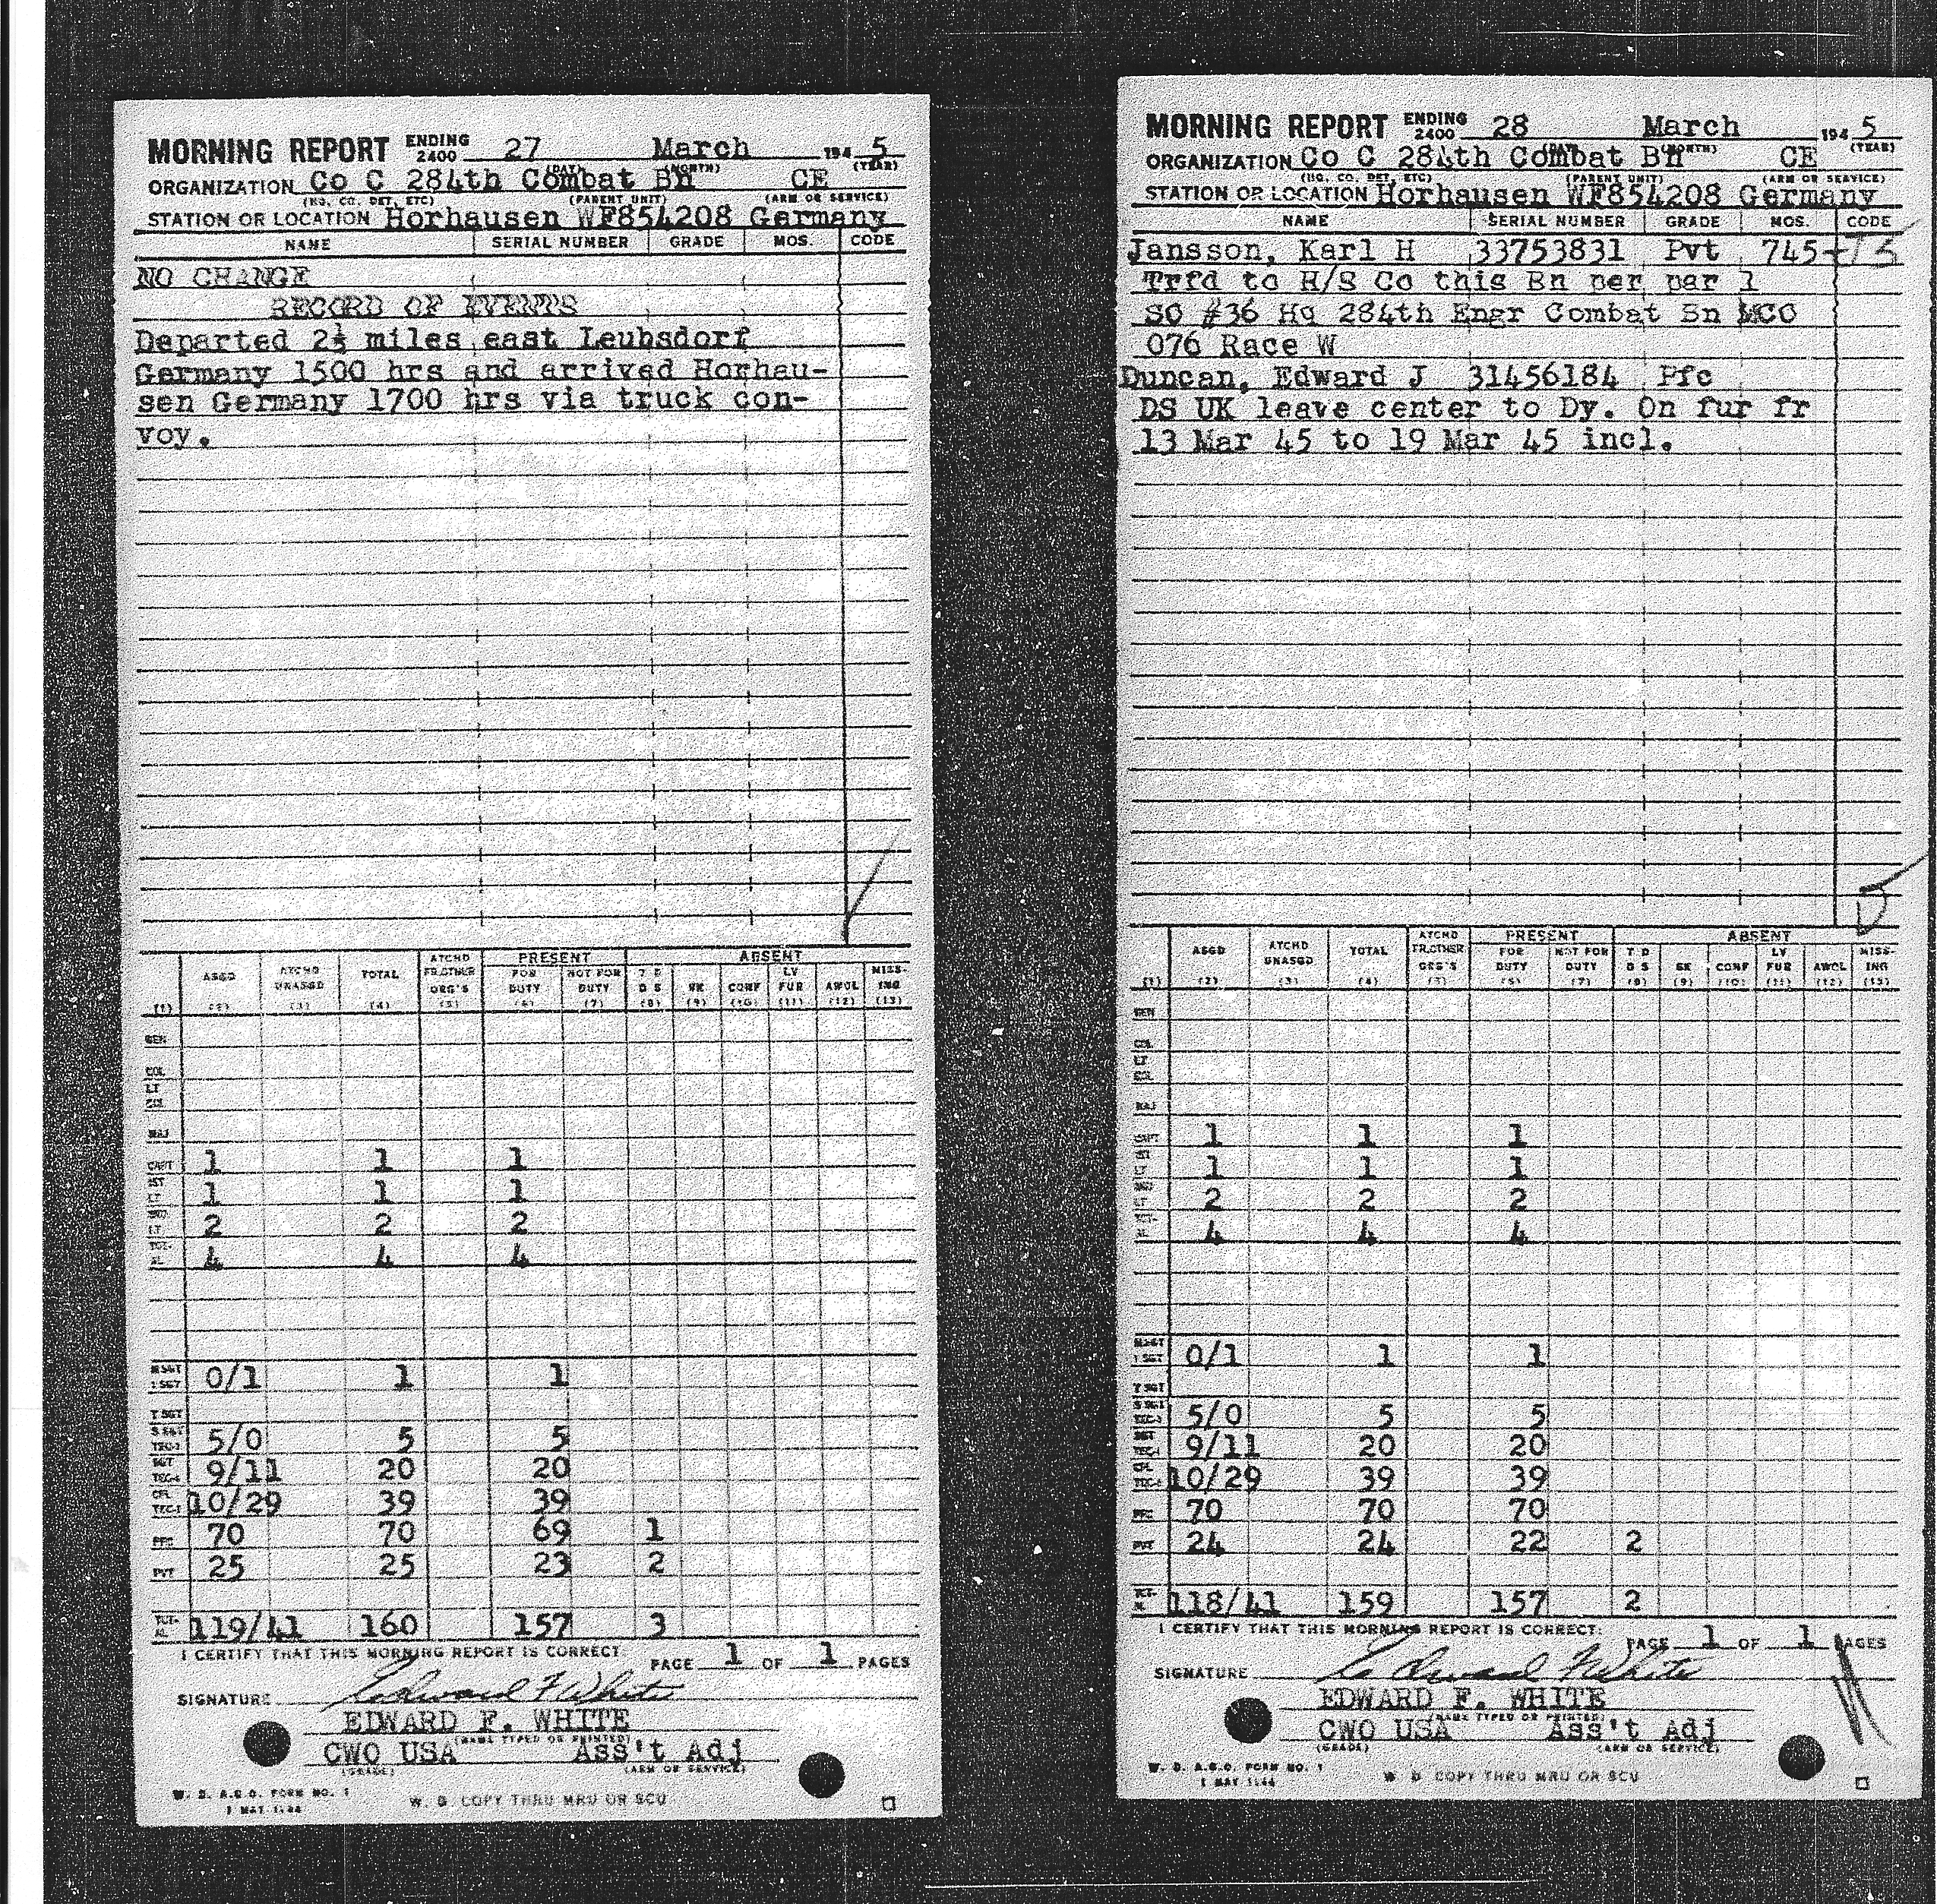 MORNING REPORT ENDING 2400 27 March 1945
(DAY) (MONTH) (YEAR)
ORGANIZATION Co C 284th Combat Bn CE
(HQ. CO. DET, ETC) (PARENT UNIT) (ARM OR SERVICE)
STATION OR LOCATION Horhausen WF854208 Germany
NAME SERIAL NUMBER GRADE MOS. CODE
NO CHANGE
RECORD OF EVENTS
Departed 2½ miles east Leubsdorf
Germany 1500 hrs and arrived Horhau-
sen Germany 1700 hrs via truck con-
voy.
ASGD ATCHD UNASGD TOTAL ATCHD FR.OTHER ORG'S PRESENT FOR DUTY NOT FOR DUTY ABSENT T D D S SK CONF LV FUR AWOL MISS-ING
(1) (2) (3) (4) (5) (6) (7) (8) (9) (10) (11) (12) (13)
GEN
COL
LT COL
MAJ
CAPT 1 1 1
1ST LT 1 1 1
2ND LT 2 2 2
TOT-AL 4 4 4
M SGT 1 SGT 0/1 1 1
T SGT
S SGT TEC-3 5/0 5 5
SGT TEC-4 9/11 20 20
CPL TEC-5 10/29 39 39
PFC 70 70 69 1
PVT 25 25 23 2
TOT-AL 119/41 160 157 3
I CERTIFY THAT THIS MORNING REPORT IS CORRECT
PAGE 1 OF 1 PAGES
SIGNATURE Edward F White
EDWARD F. WHITE
(NAME TYPED OR PRINTED)
CWO USA Ass't Adj
(GRADE) (ARM OR SERVICE)
W. D. A.G.O. FORM NO. 1
1 MAY 1944
W. D. COPY THRU MRU OR SCU
MORNING REPORT ENDING 2400 28 March 1945
(DAY) (MONTH) (YEAR)
ORGANIZATION Co C 284th Combat Bn CE
(HQ. CO. DET, ETC) (PARENT UNIT) (ARM OR SERVICE)
STATION OR LOCATION Horhausen WF854208 Germany
NAME SERIAL NUMBER GRADE MOS. CODE
Jansson, Karl H 33753831 Pvt 745
Trfd to H/S Co this Bn per par 1
SO #36 Hq 284th Engr Combat Bn MCO
076 Race W
Duncan, Edward J 31456184 Pfc
DS UK leave center to Dy. On fur fr
13 Mar 45 to 19 Mar 45 incl.
ASGD ATCHD UNASGD TOTAL ATCHD FR.OTHER ORG'S PRESENT FOR DUTY NOT FOR DUTY ABSENT T D D S SK CONF LV FUR AWOL MISS-ING
(1) (2) (3) (4) (5) (6) (7) (8) (9) (10) (11) (12) (13)
GEN
COL
LT COL
MAJ
CAPT 1 1 1
1ST LT 1 1 1
2ND LT 2 2 2
TOT-AL 4 4 4
M SGT 1 SGT 0/1 1 1
T SGT
S SGT TEC-3 5/0 5 5
SGT TEC-4 9/11 20 20
CPL TEC-5 10/29 39 39
PFC 70 70 70
PVT 24 24 22 2
TOT-AL 118/41 159 157 2
I CERTIFY THAT THIS MORNING REPORT IS CORRECT:
PAGE 1 OF 1 PAGES
SIGNATURE Edward F White
EDWARD F. WHITE
(NAME TYPED OR PRINTED)
CWO USA Ass't Adj
(GRADE) (ARM OR SERVICE)
W. D. A.G.O. FORM NO. 1
1 MAY 1944
W D COPY THRU MRU OR SCU